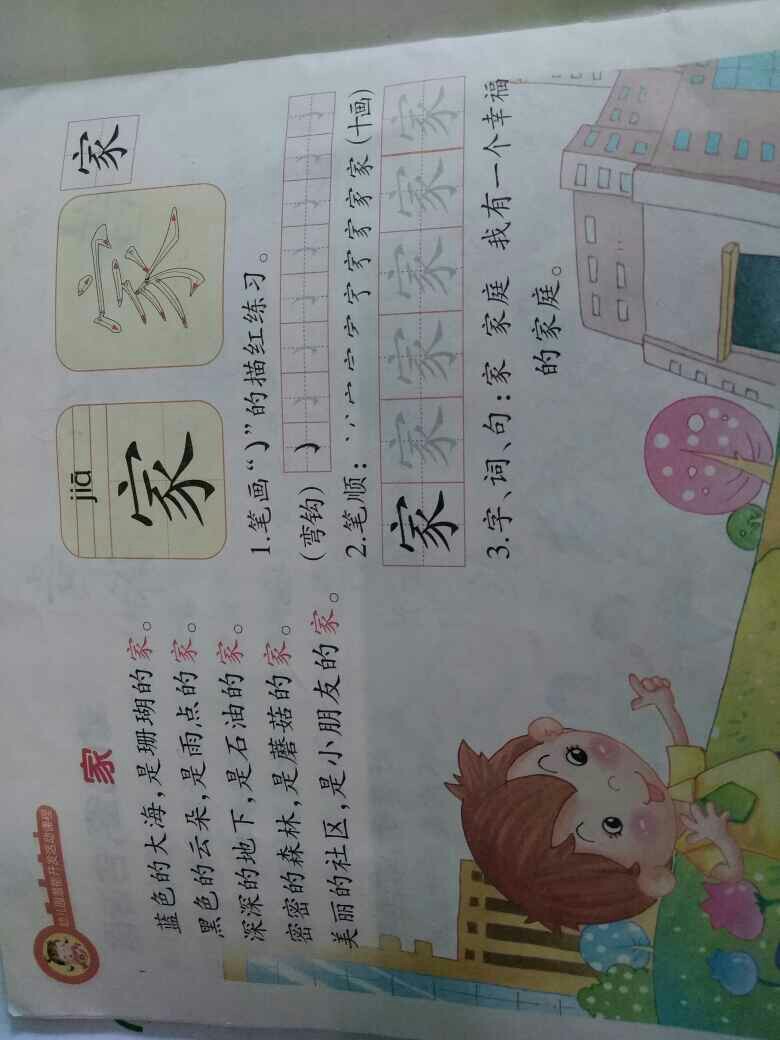 幼儿园潜能开发活动课程
家
蓝色的大海，是珊瑚的家。
黑色的云朵，是雨点的家。
深深的地下，是石油的家。
密密的森林，是蘑菇的家。
美丽的社区，是小朋友的家。
jiā
家 家 家
1.笔画“㇁”的描红练习。
(弯钩)
2.笔顺：
(十画)
家 家 家 家 家 家
3.字、词、句：家 家庭 我有一个幸福
的家庭。